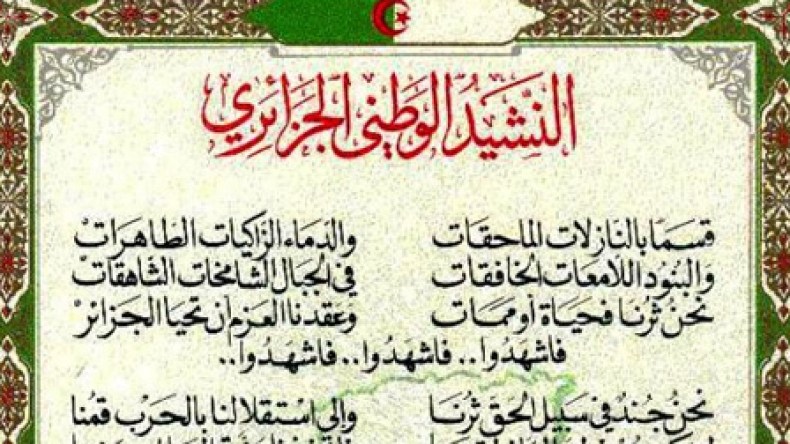 النَّشِيدُ الوَطَنِي الجَزَائِرِي
قسَمًا بالنازلات الماحقات والدماء الزاكيات الطاهراتْ
والبنود اللامعات الخافقات في الجبال الشامخات الشاهقاتْ
نحن ثرنا فحياة أو ممات وعقدنا العزم أن تحيا الجزائرْ
فاشهدوا.. فاشهدوا.. فاشهدوا..
نحن جند في سبيل الحق ثرنا وإلى استقلالنا بالحرب قمنا